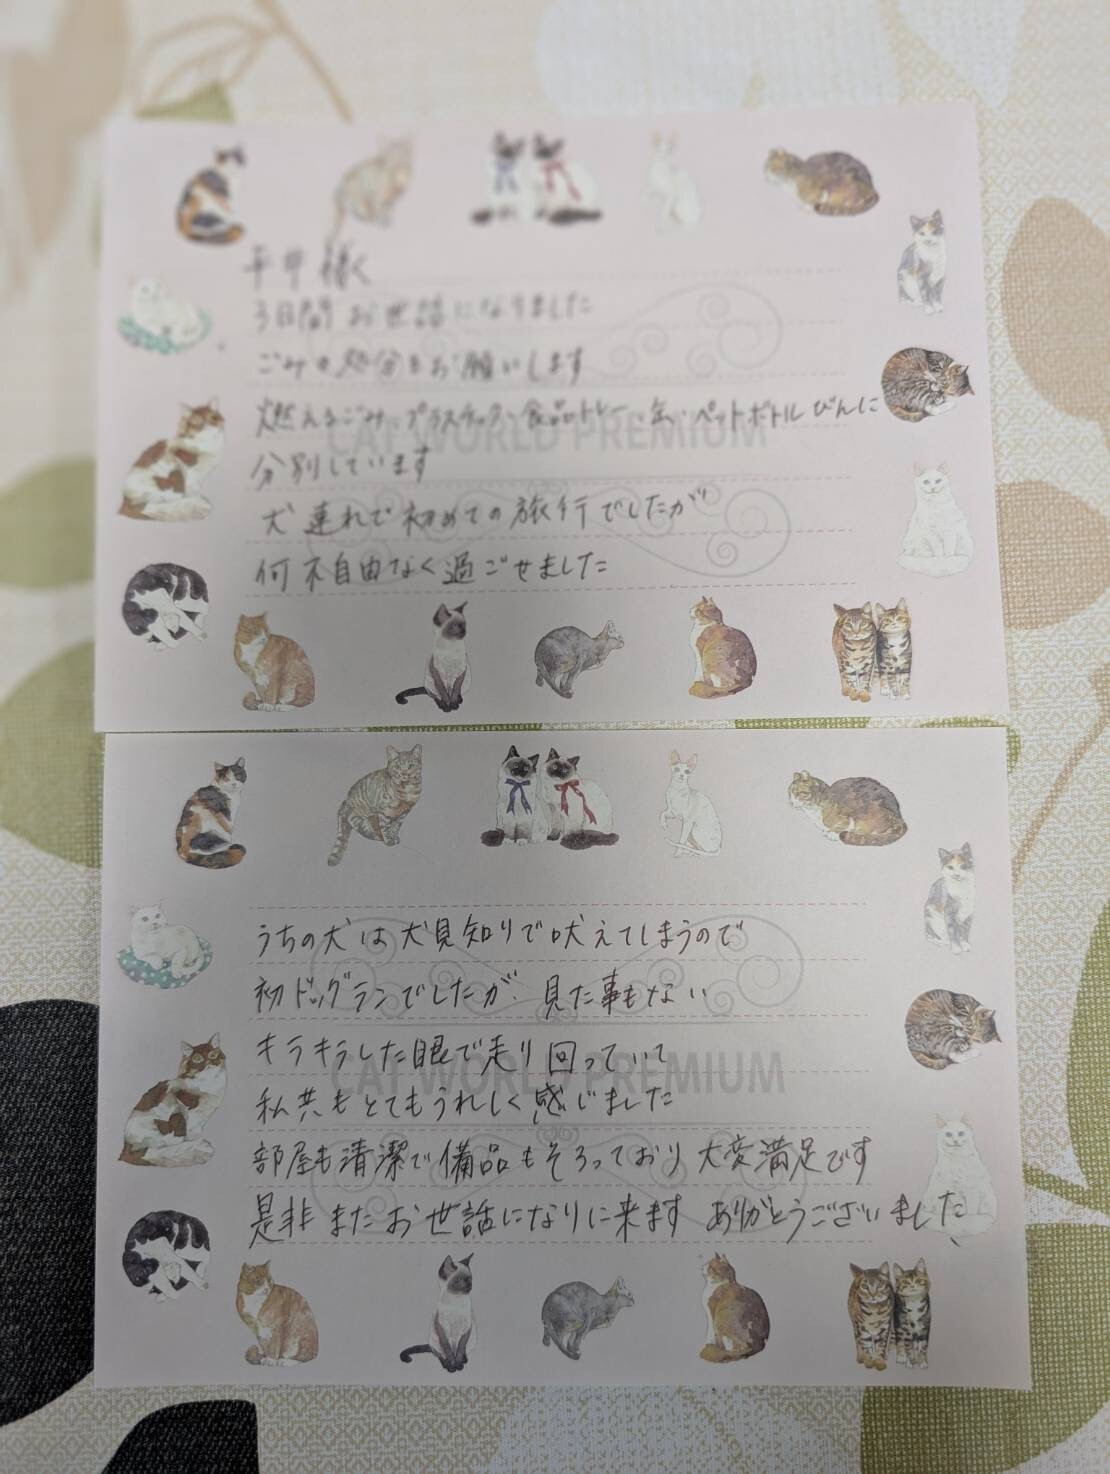 平井様
3日間お世話になりました
ごみの処分をお願いします
燃えるごみ、プラスチック、食品トレー、缶、ペットボトル びんに
分別しています
犬連れで初めての旅行でしたが
何不自由なく過ごせました
CAT WORLD PREMIUM
うちの犬は犬見知りで吠えてしまうので
初ドッグランでしたが、見た事もない
キラキラした眼で走り回っていて
私共もとてもうれしく感じました
部屋も清潔で備品もそろっており 大変満足です
是非またお世話になりに来ます ありがとうございました
CAT WORLD PREMIUM